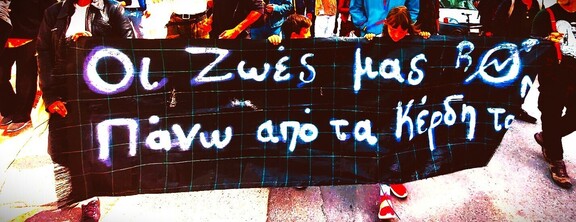 Οι Ζωές μας
Πάνω από τα Κέρδη το